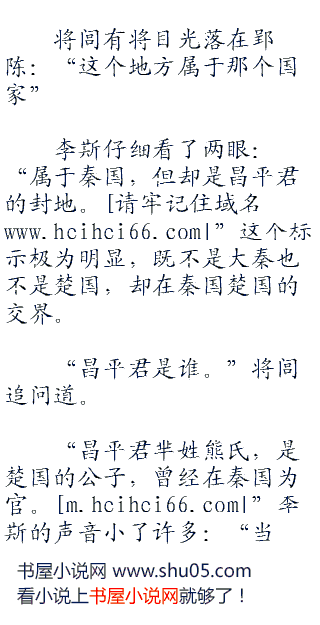 将闾有将目光落在郢
陈：“这个地方属于那个国
家”
李斯仔细看了两眼：
“属于秦国，但却是昌平君
的封地。[请牢记住域名
www.hcihci66.com|”这个标
示极为明显，既不是大秦也
不是楚国，却在秦国楚国的
交界。
“昌平君是谁。”将闾
追问道。
“昌平君芈姓熊氏，是
楚国的公子，曾经在秦国为
官。[m.hcihci66.com|”李
斯的声音小了许多：“当
书屋小说网 www.shu05.com
看小说上书屋小说网就够了！